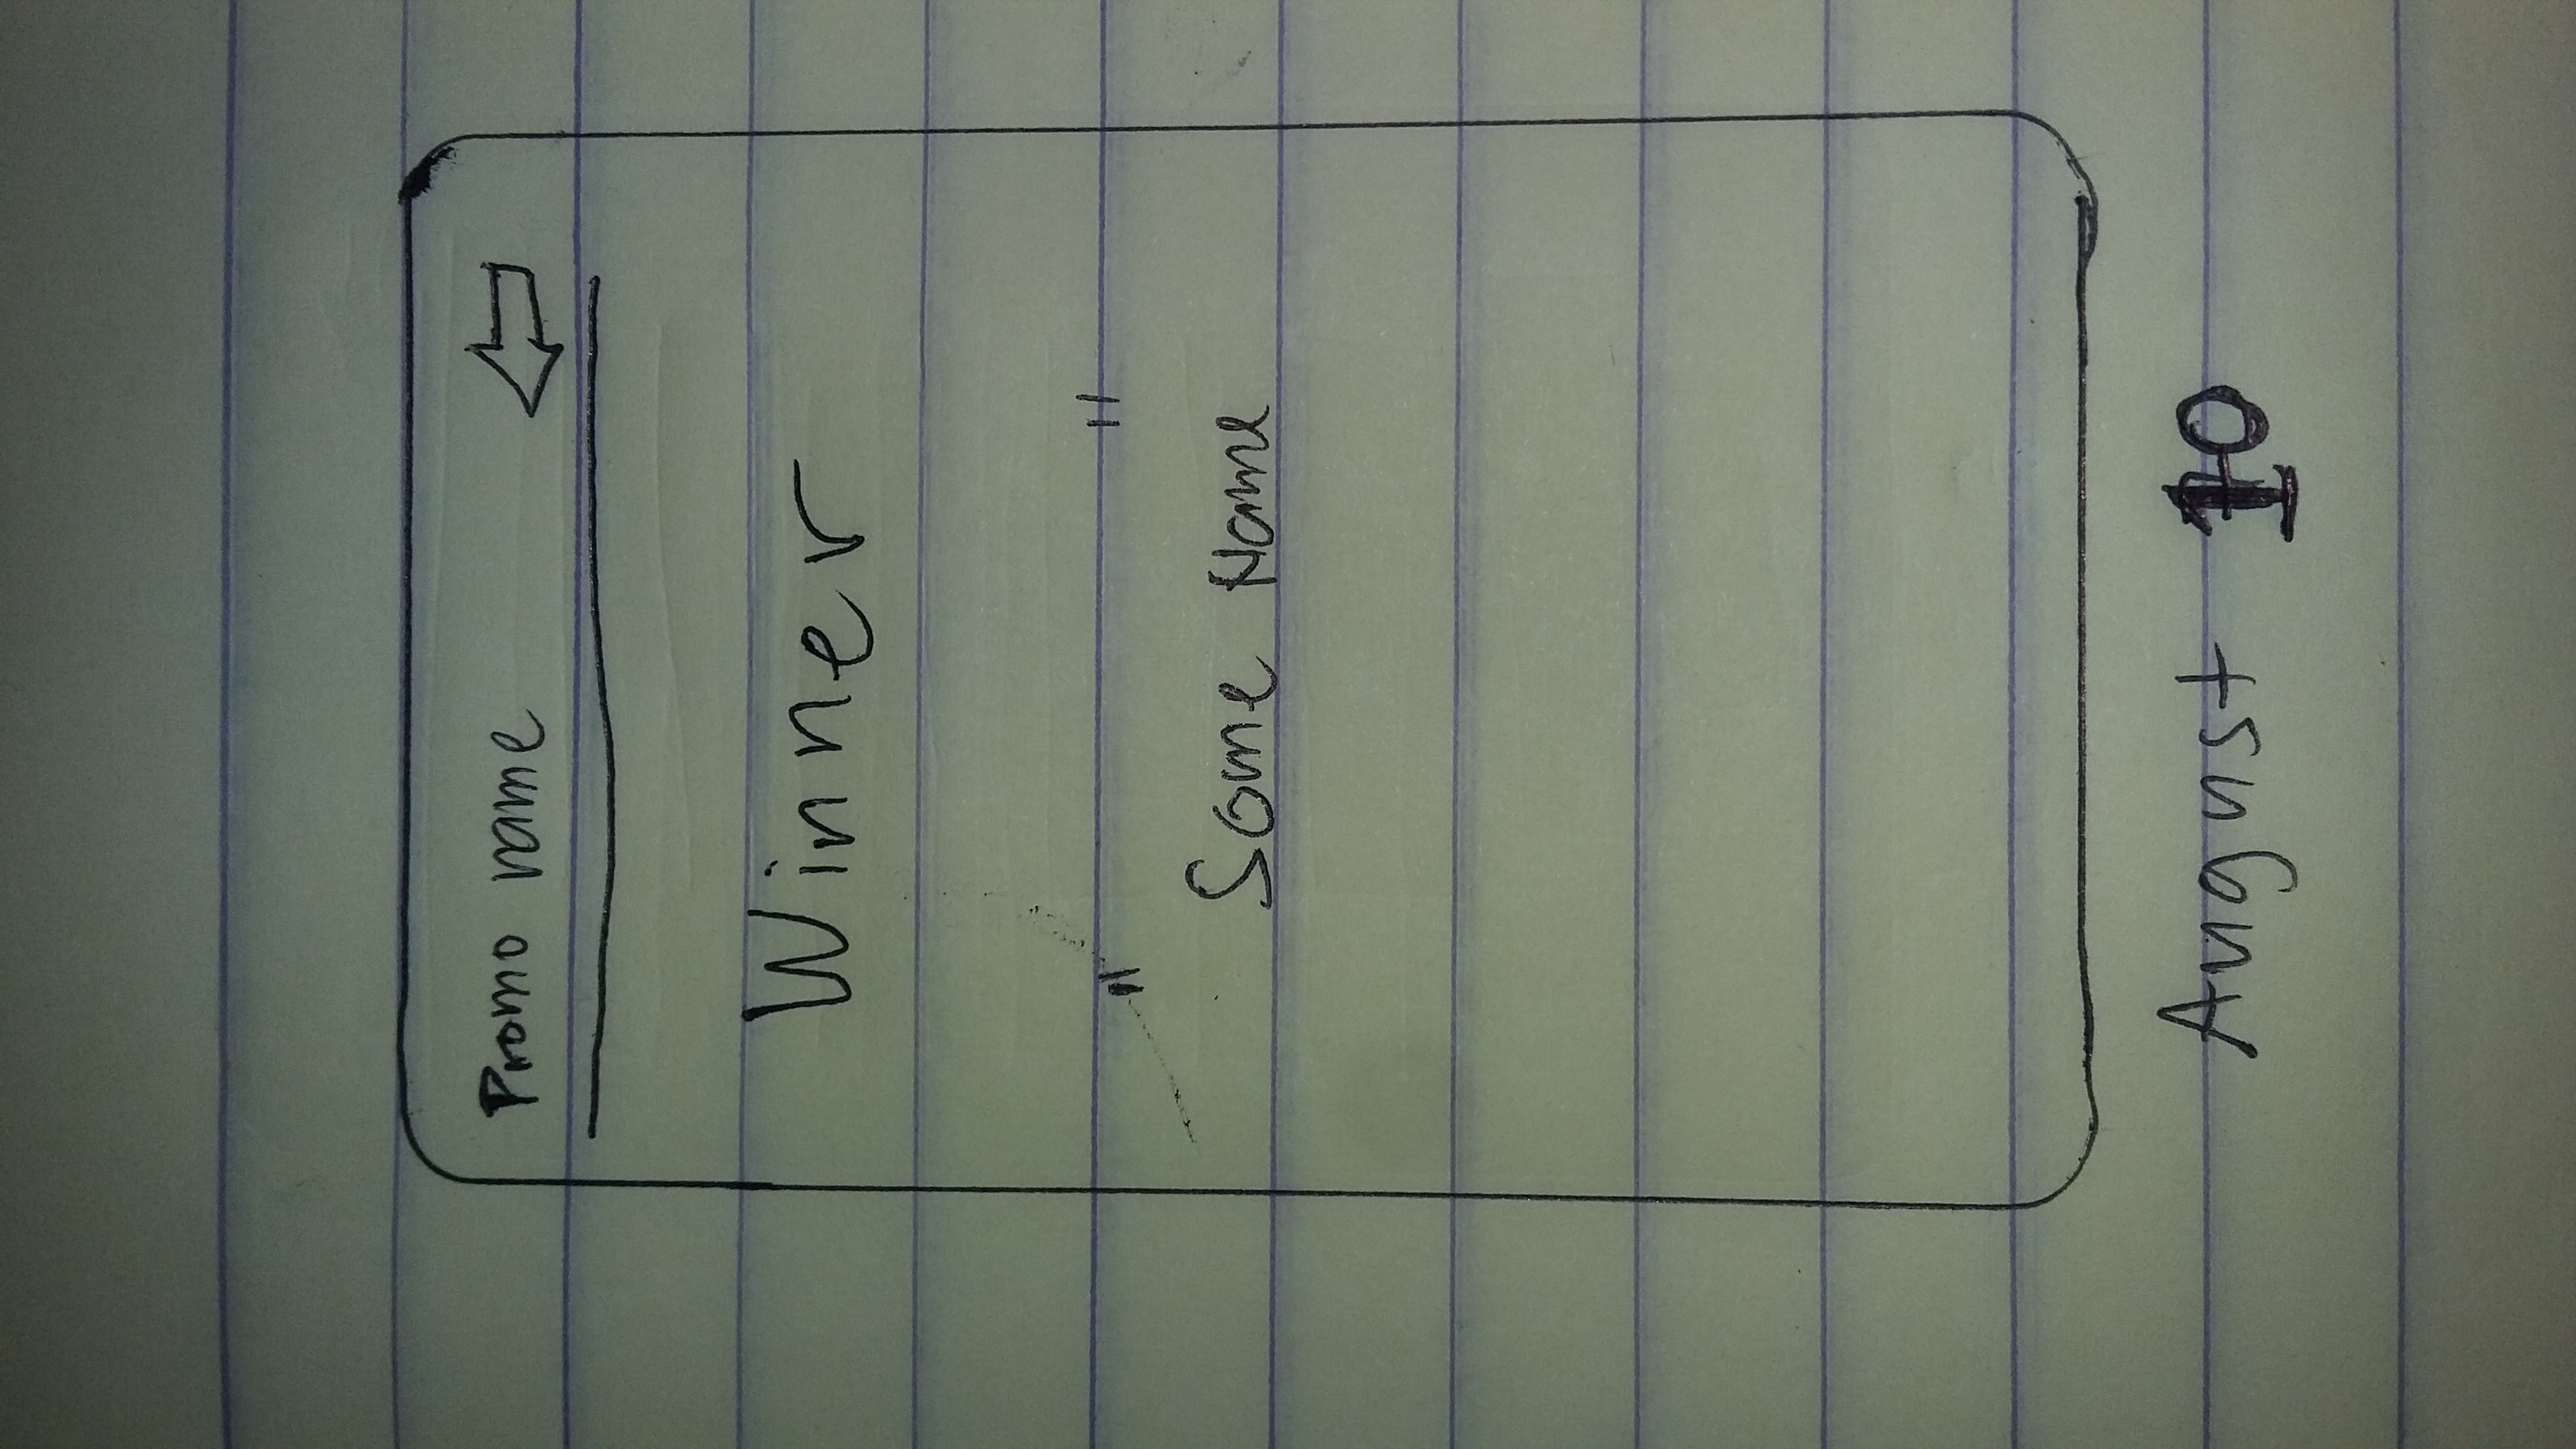 Promo name
Winner
" "
Some Name
August 10